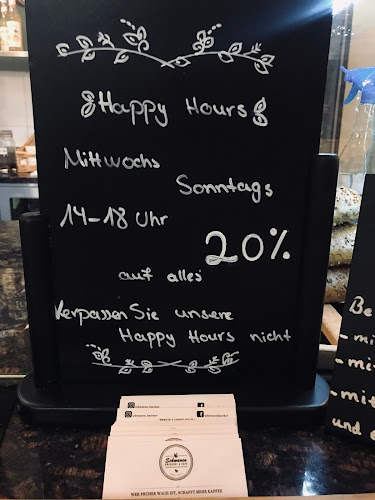 Happy Hours
Mittwochs
Sonntags
14-18 Uhr
20%
auf alles
Verpassen Sie unsere
Happy Hours nicht
Schwanen
WER FRÜHER WACH IST, SCHAFFT MEHR KAFFEE
Be
-mi
-mi
-mit
und e